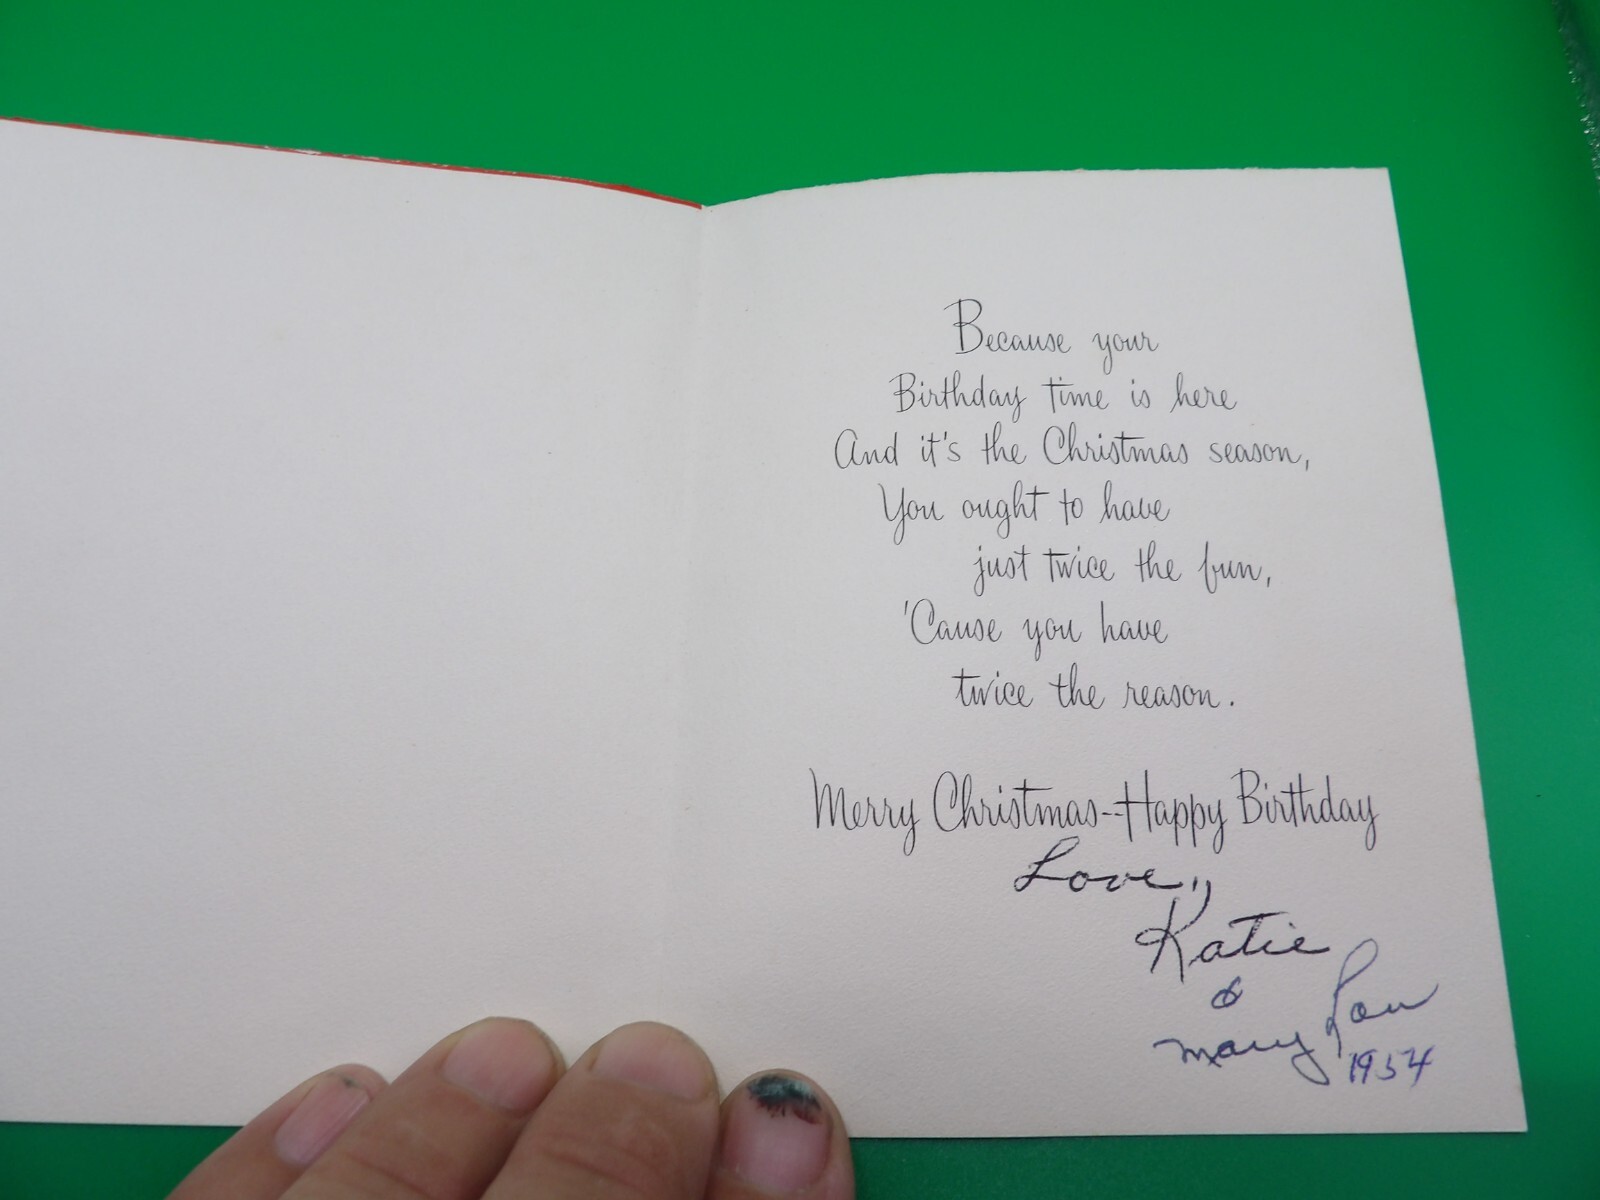 Because your
Birthday time is here
And it's the Christmas season,
You ought to have
just twice the fun,
'Cause you have
twice the reason.
Merry Christmas--Happy Birthday
Love,,
Katie
&
Mary Lou
1954